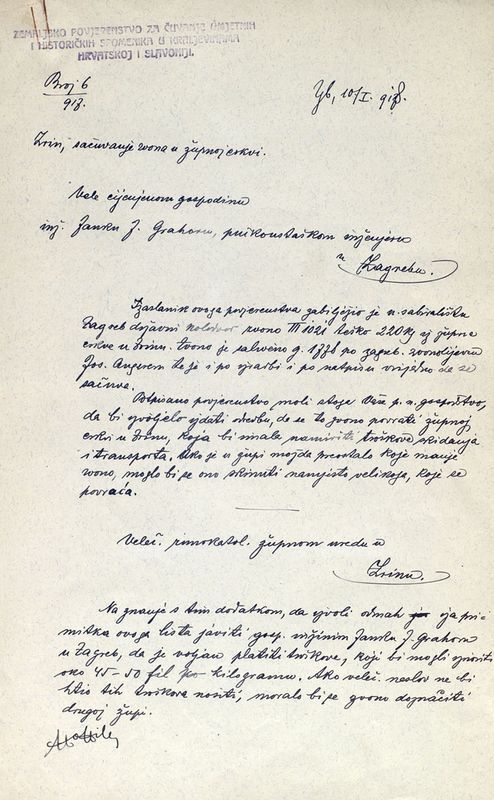 ZEMALJSKO POVJERENSTVO ZA ČUVANJE UMJETNIH
I HISTORIČKIH SPOMENIKA U KRALJEVINAMA
HRVATSKOJ I SLAVONIJI.
Broj 6
918.
Zgb, 10/I. 918.
Zrin, sačuvanje zvona u župnoj crkvi.
Vele cijenjenom gospodinu
inž. Janku J. Grahoru, inženjeru
u Zagrebu.
Izaslanik ovoga povjerenstva zabilježio je u sabiralištu
Zagreb državni kolodvor zvono III 1021 teško 220 kg iz župne
crkve u Zrinu. Zvono je saliveno g. 1776 po zagreb. zvonolijevcu
Jos. te je i po izradbi i po natpisu vrijedno da se
sačuva.
Potpisano povjerenstvo moli stoga Vaše p. n. gospodstvo,
da bi izvoljelo izdati odredbu, da se to zvono povrati župnoj
crkvi u Zrinu, koja bi imala namiriti troškove skidanja
i transporta. Ako je u župi možda preostalo koje manje
zvono, moglo bi se ono skinuti namjesto velikoga, koje se
povraća.
Veleč. rimokatol. župnom uredu u
Zrinu.
Na znanje s tim dodatkom, da izvoli odmah iza pri-
mitka ovoga lista javiti gosp. inžiniru Janku J. Grahoru
u Zagreb, da je voljan platiti troškove, koji bi mogli iznositi
oko 45-50 fil po kilogramu. Ako veleč. naslov ne bi
htio tih troškova nositi, moralo bi se zvono doznačiti
drugoj župi.